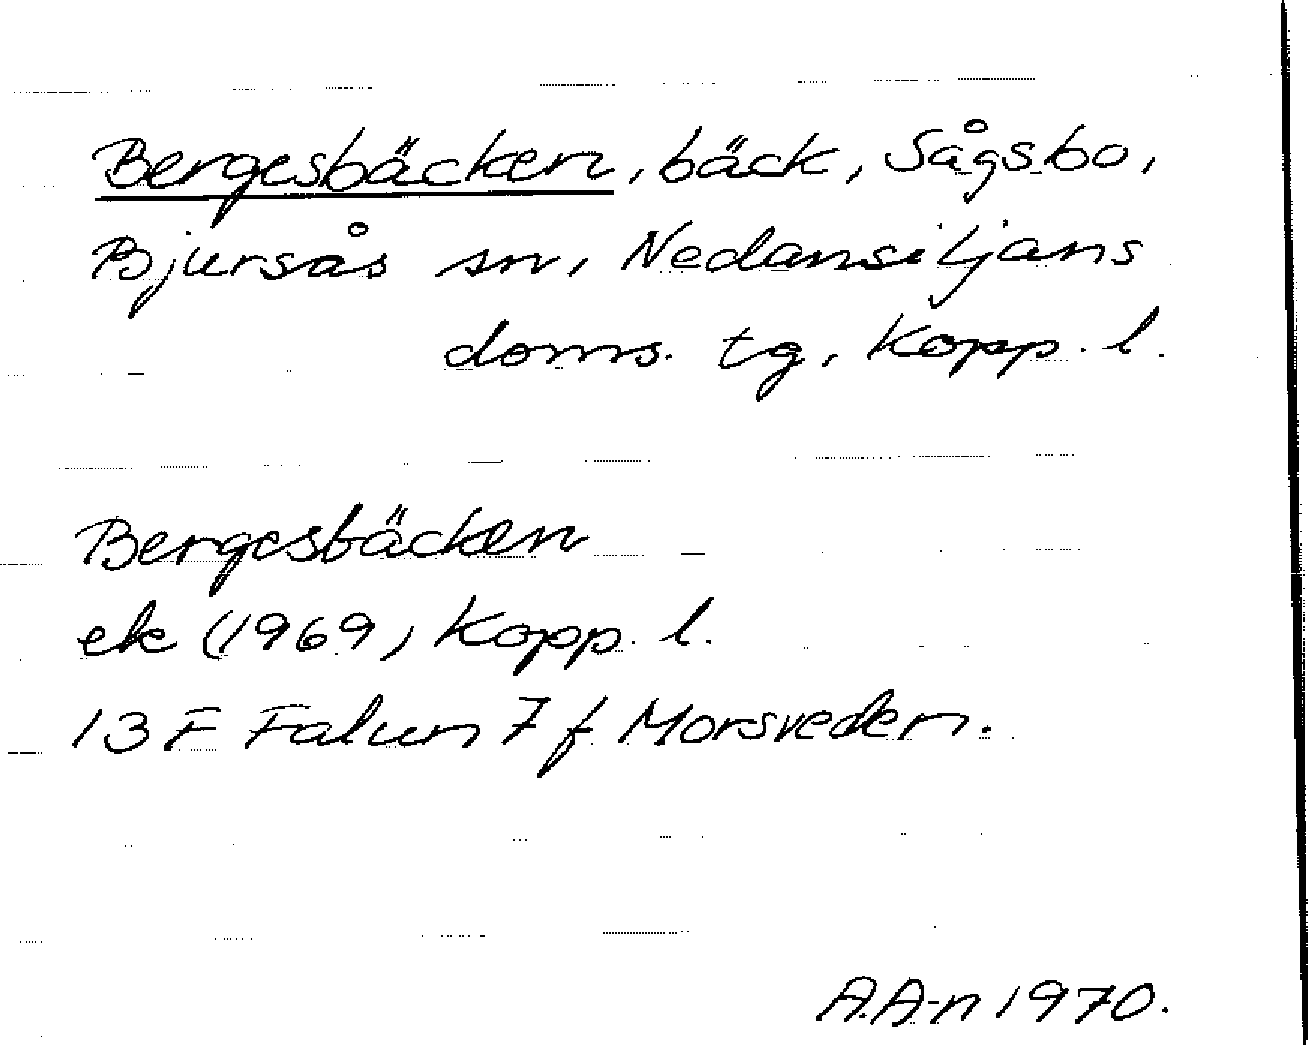 Bergesbäcken, bäck, Sågsbo,
Bjursås sn, Nedansiljans
doms. tg, Kopp. l.
Bergesbäcken
ek (1969) Kopp. l.
13 F Falun 7 f Morsveden.
A.A-n 1970.